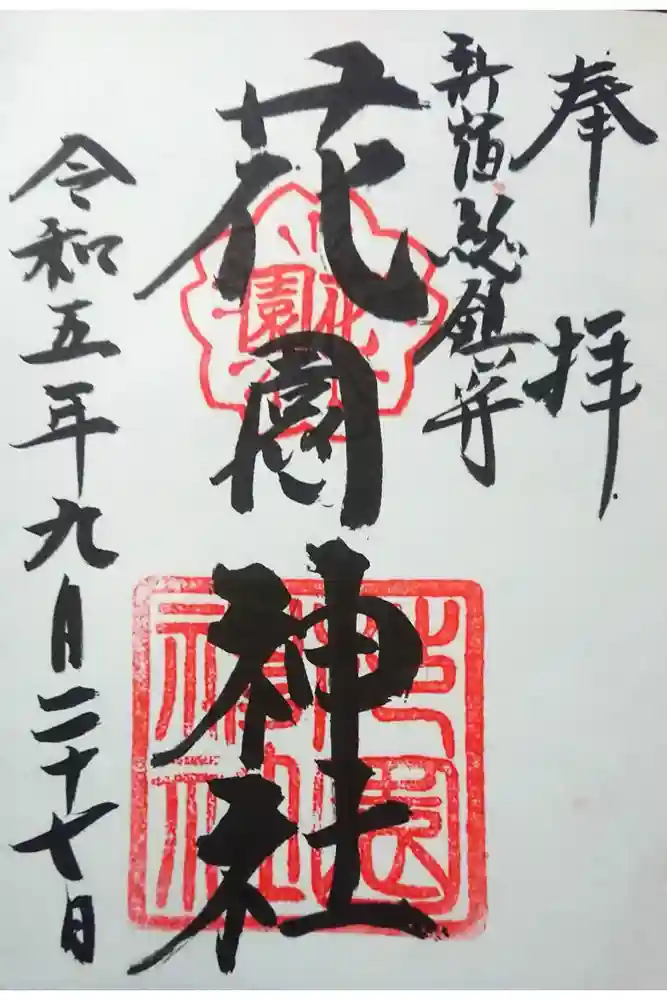 奉拝
新宿総鎮守
花園神社
花園
花園神社
令和五年九月二十七日